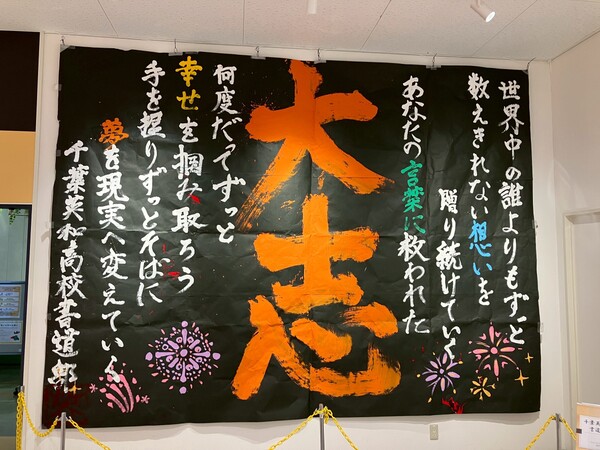 世界中の誰よりもずっと
数えきれない想いを
贈り続けていく
あなたの言葉に救われた
大志
何度だってずっと
幸せを掴み取ろう
手を握りずっとそばに
夢を現実へ変えていく
千葉英和高校書道部